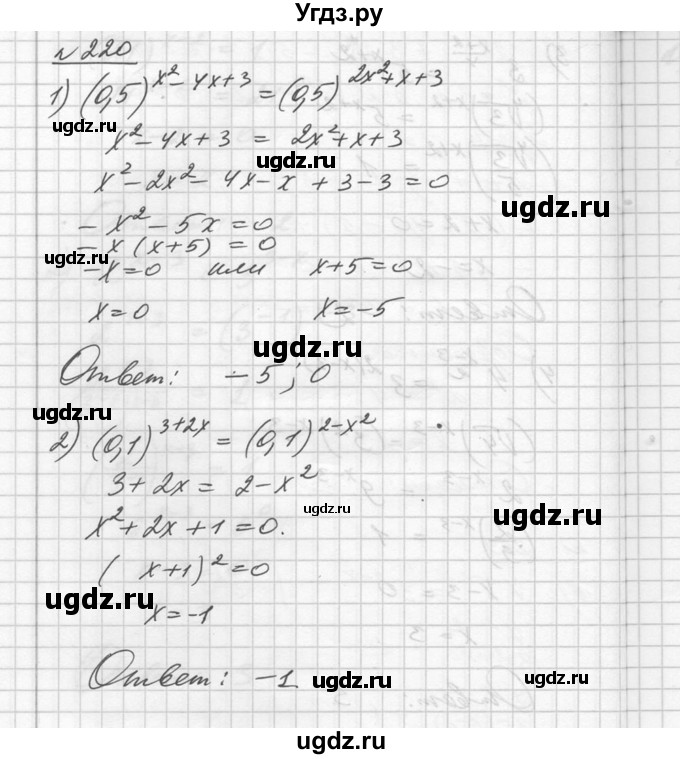 Угдз.ру
№220
1) (0,5)^{x²-4x+3} = (0,5)^{2x²+x+3}
ugdz.ru
x²-4x+3 = 2x²+x+3
ugdz.ru
x²-2x²-4x-x+3-3=0
ugdz.ru
-x²-5x=0
-x(x+5)=0
ugdz.ru
-x=0 или x+5=0
x=0 x=-5
ugdz.ru
Ответ: -5; 0
2) (0,1)^{3+2x} = (0,1)^{2-x²}
3+2x = 2-x²
ugdz.ru
ugdz.ru
x²+2x+1=0.
(x+1)²=0
ugdz.ru
x=-1
Ответ: -1
ugdz.ru
ugdz.ru
ugdz.ru